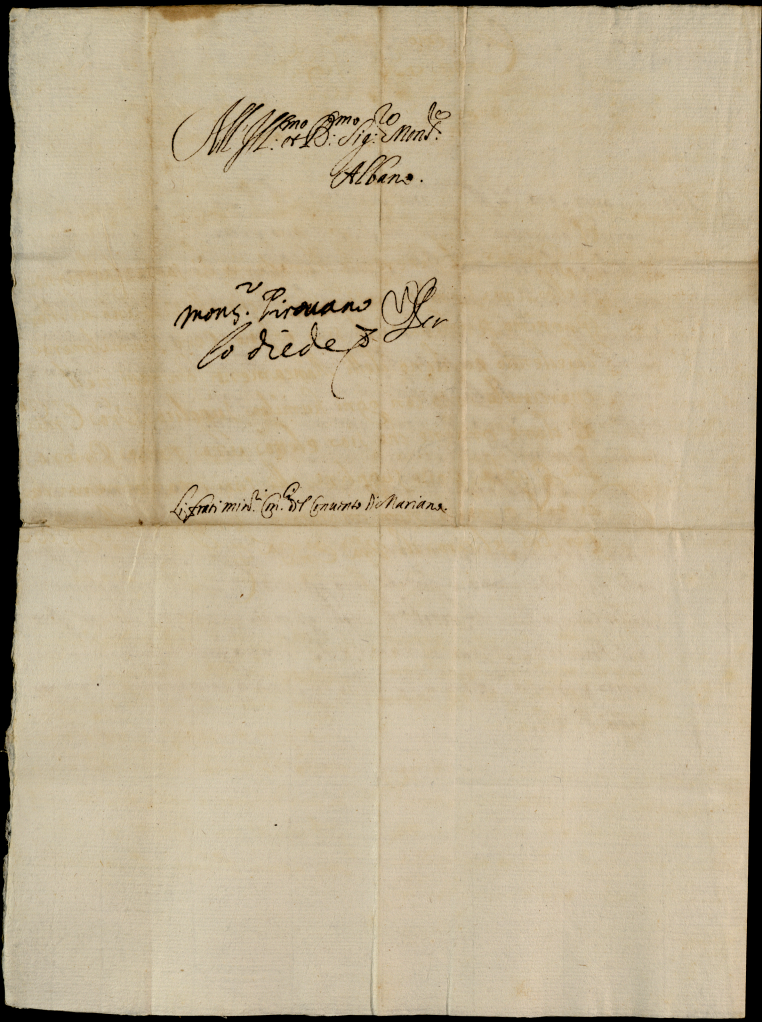 All' Ill:mo et R:mo Sig:re Mons:re
Albano.
mons.r Pirovano
lo diede p
Per
Li frati min:ri Con:li del Convento di Mariano.